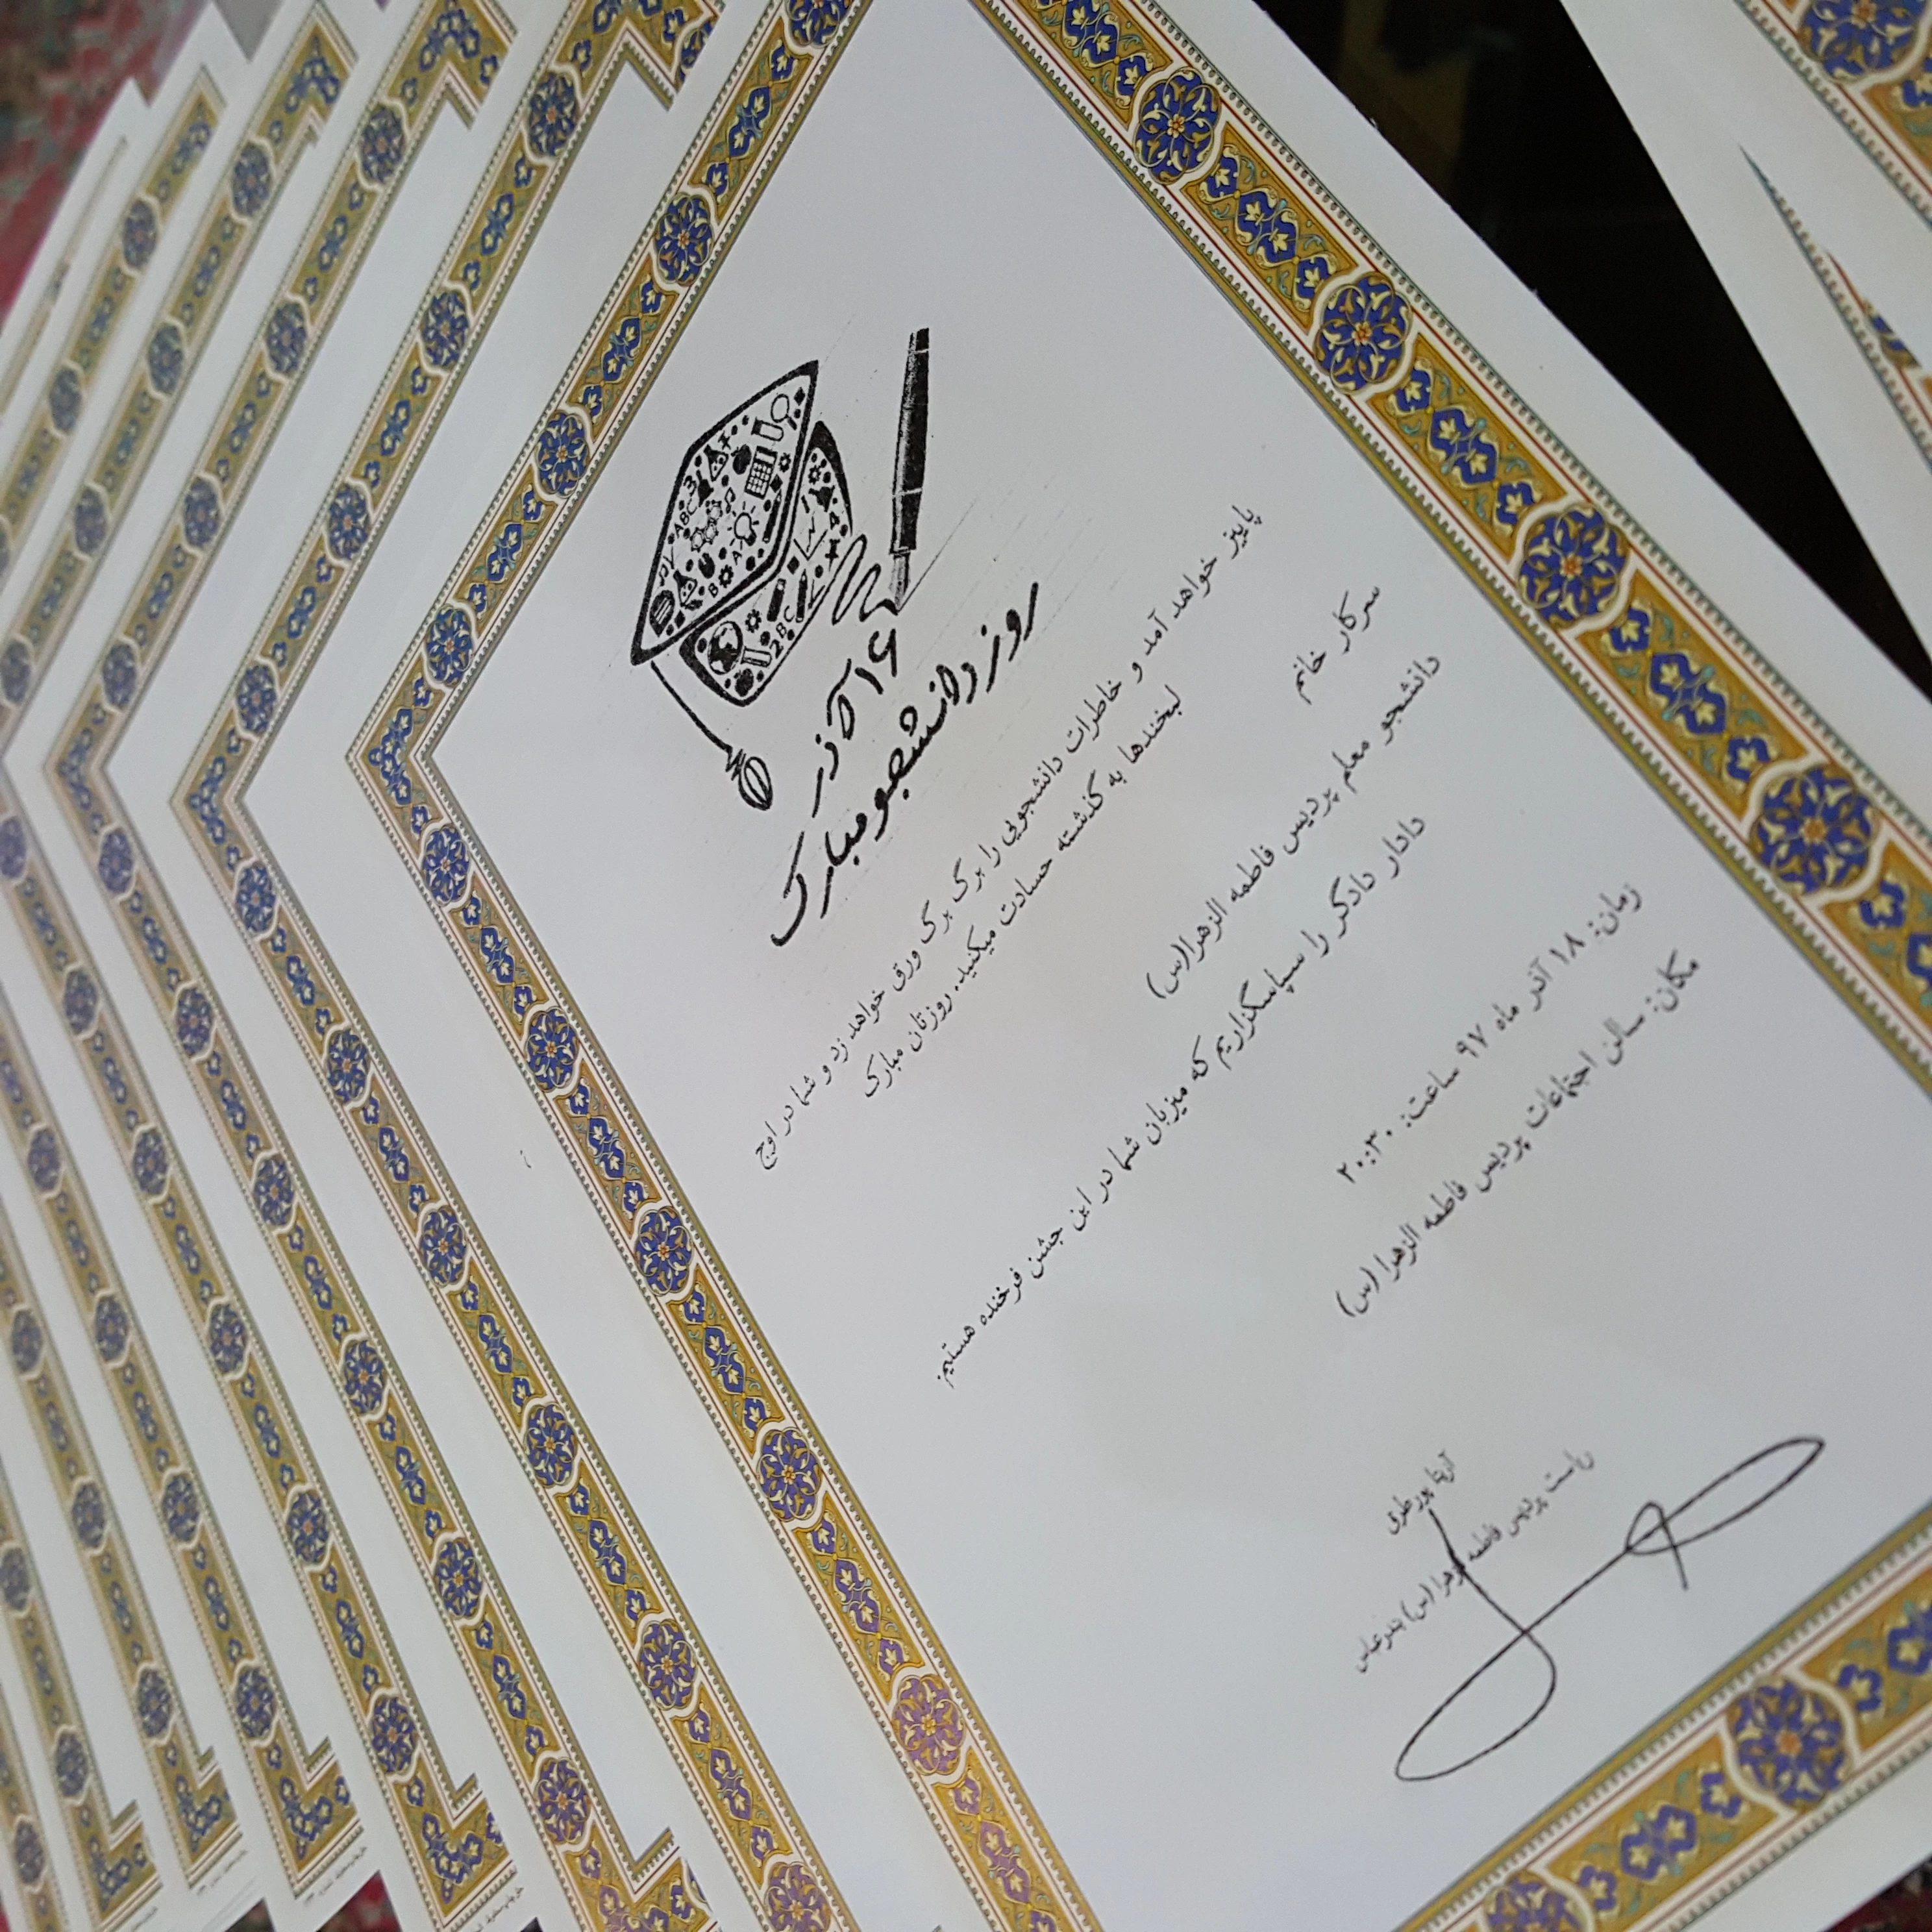 ۱۶ آذر
روز دانشجو مبارک
پاییز خواهد آمد و خاطرات دانشجویی را برگ برگ ورق خواهد زد و شما در اوج
لبخندها به گذشته حسادت میکنید. روزتان مبارک
سرکار خانم
دانشجو معلم پردیس فاطمه الزهرا(س)
دادار دادگر را سپاسگزاریم که میزبان شما در این جشن فرخنده هستیم.
زمان: ۱۸ آذر ماه ۹۷ ساعت: ۲۰:۳۰
مکان: سالن اجتماعات پردیس فاطمه الزهرا (س)
آزیتا پورطرق
ریاست پردیس فاطمه الزهرا (س) بندرعباس